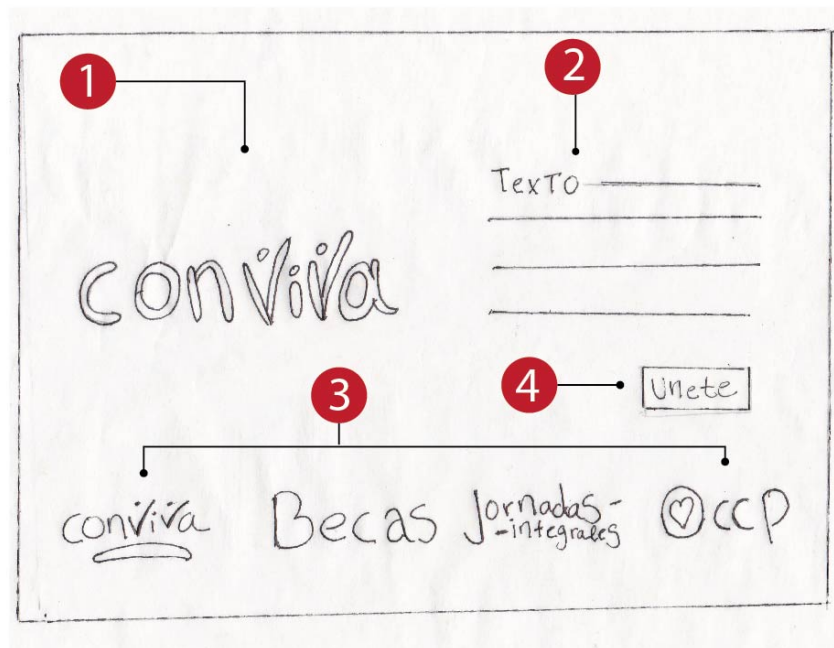 1
2
Texto
conviva
3
4
Unete
conviva
Becas
Jornadas-
-integrales
CCP